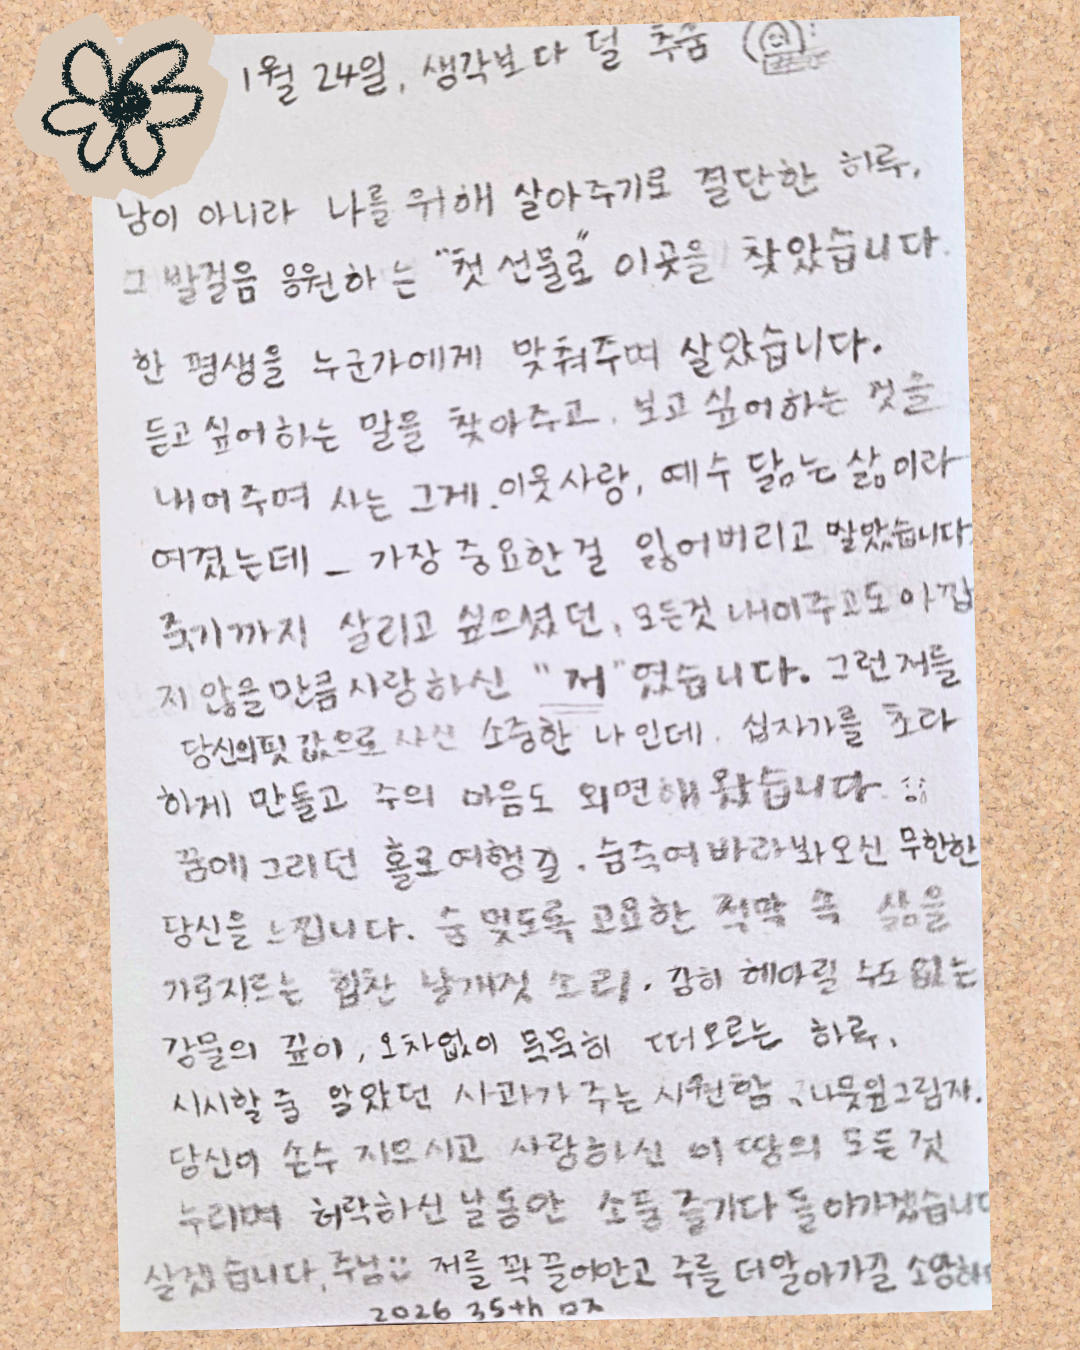 1월 24일, 생각보다 덜 추움
남이 아니라 나를 위해 살아주기로 결단한 하루,
그 발걸음 응원하는 "첫 선물로" 이곳을 찾았습니다.
한 평생을 누군가에게 맞춰주며 살았습니다.
듣고 싶어하는 말을 찾아주고. 보고 싶어하는 것을
내어주며 사는 그게. 이웃사랑, 예수 닮는 삶이라
여겼는데_ 가장 중요한 걸 잃어버리고 말았습니다.
죽기까지 살리고 싶으셨던, 모든것 내어주고도 아깝
지 않을만큼 사랑하신 "저"였습니다. 그런 저를
당신의 핏 값으로 사신 소중한 나인데. 십자가를 초라
하게 만들고 주의 마음도 외면해왔습니다.
꿈에 그리던 홀로여행길. 숨죽여 바라봐오신 무한한
당신을 느낍니다. 숨 멎도록 고요한 적막 속 삶을
가로지르는 힘찬 날개짓 소리. 감히 헤아릴 수도 없는
강물의 깊이, 오차없이 묵묵히 떠오르는 하루.
시시할 줄 알았던 사과가 주는 시원함, 나뭇잎그림자.
당신이 손수 지으시고 사랑하신 이 땅의 모든 것
누리며 허락하신 날동안 소풍 즐기다 돌아가겠습니다
살겠습니다, 주님 저를 꽉 끌어안고 주를 더 알아가길 소망하
2026 35th